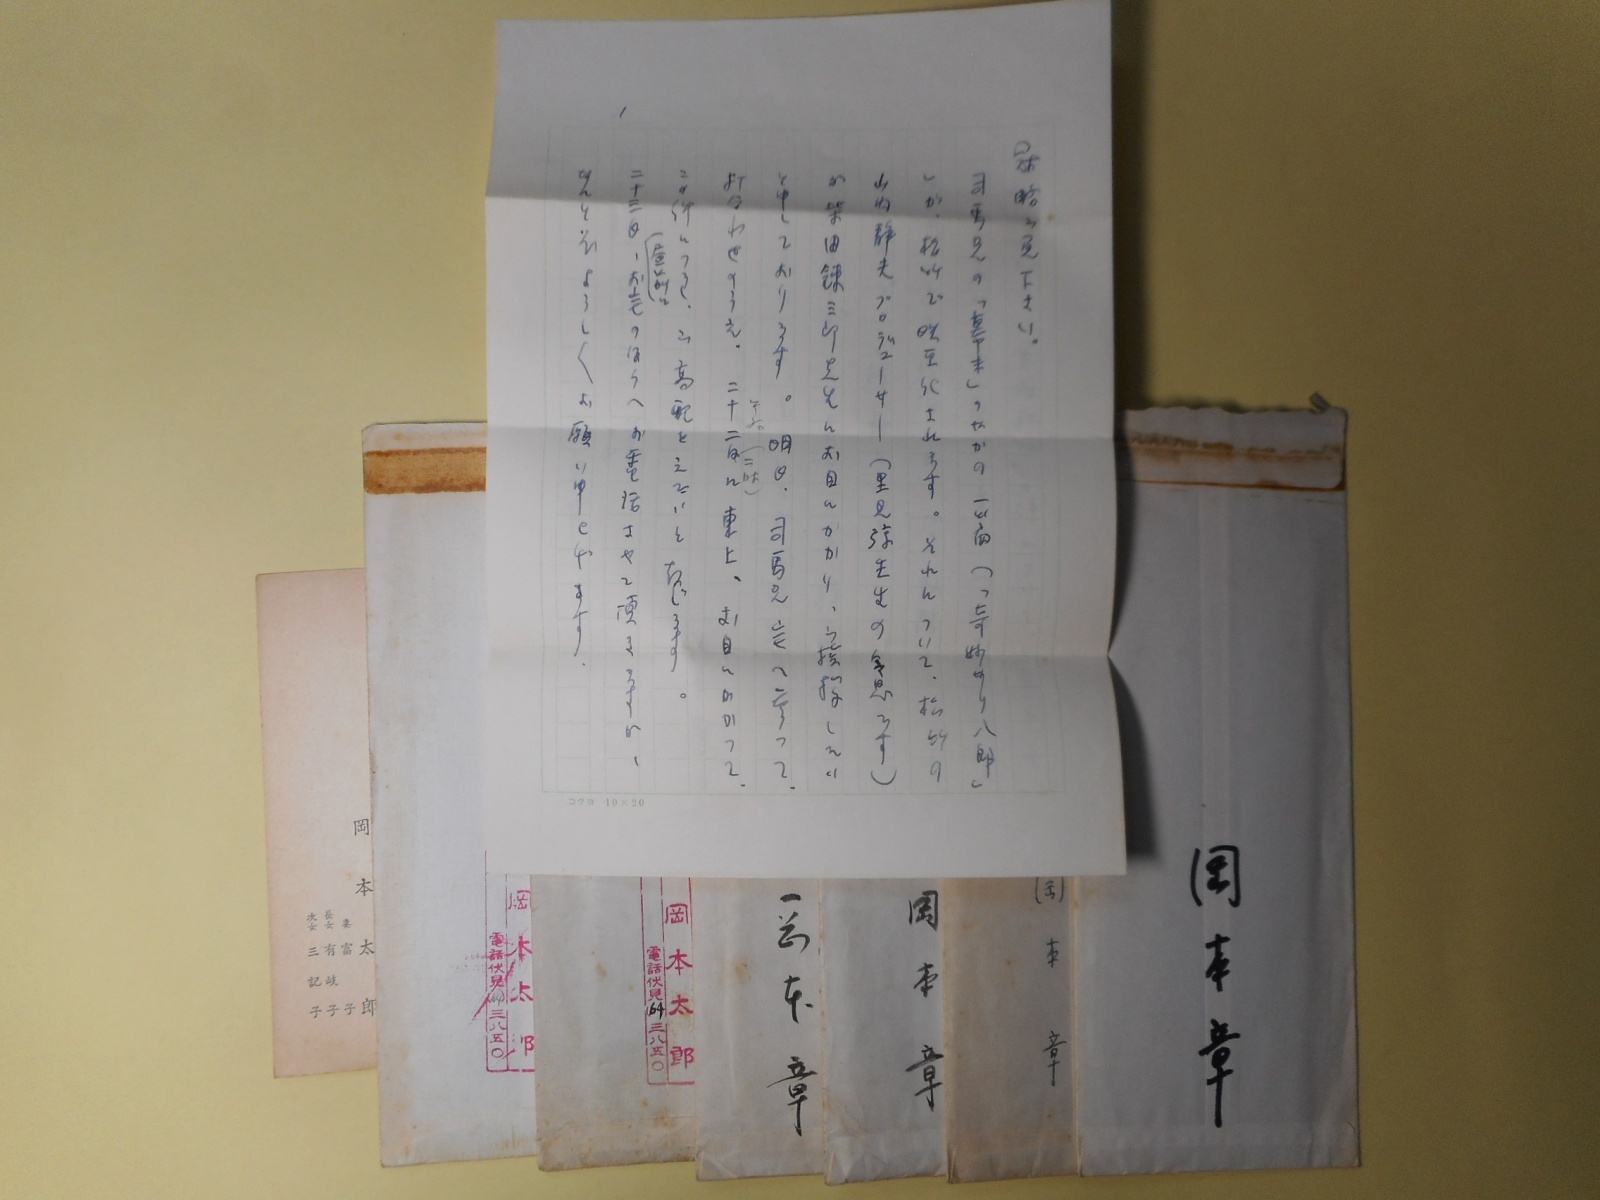 冠省御免下さい。
司馬兄の「幕末」のなかの一篇(「奇妙なり八郎」
)が、松竹で映画化されます。それについて、松竹の
山内静夫プロデューサー(里見弴先生の令息です)
が柴田錬三郎先生にお目にかかり、ご挨拶したい
と申しております。明日、司馬兄宅へ寄って、
打合わせのうえ、二十二日に東上、お目にかかって、
この件につき、ご高配をえたいと存じます。
二十三日、お宅のほうへお電話させて頂きますが、
(昼前に
なんとぞよろしくお願い申しあげます。
コクヨ 10×20
岡本太郎
妻 富
長女 有岐子
次女 三記子
岡本太郎
電話伏見 三八五〇
岡本太郎
電話伏見64三八五〇
岡本章
岡本章
岡本章
岡本章